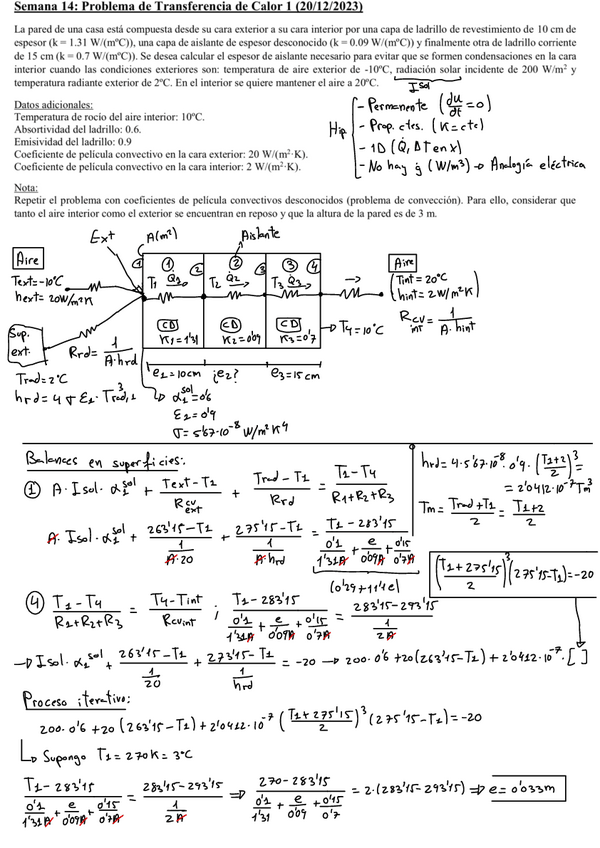 Semana 14: Problema de Transferencia de Calor 1 (20/12/2023)
La pared de una casa está compuesta desde su cara exterior a su cara interior por una capa de ladrillo de revestimiento de 10 cm de
espesor (k = 1.31 W/(mºC)), una capa de aislante de espesor desconocido (k = 0.09 W/(mºC)) y finalmente otra de ladrillo corriente
de 15 cm (k = 0.7 W/(mºC)). Se desea calcular el espesor de aislante necesario para evitar que se formen condensaciones en la cara
interior cuando las condiciones exteriores son: temperatura de aire exterior de -10ºC, radiación solar incidente de 200 W/m² y
temperatura radiante exterior de 2ºC. En el interior se quiere mantener el aire a 20ºC.
Isol
Datos adicionales:
Temperatura de rocío del aire interior: 10ºC.
Absortividad del ladrillo: 0.6.
Emisividad del ladrillo: 0.9
Coeficiente de película convectivo en la cara exterior: 20 W/(m²·K).
Coeficiente de película convectivo en la cara interior: 2 W/(m²·K).
Hip.
- Permanente (du/dt = 0)
- Prop. ctes. (K = cte)
- 1D (Q̇, ΔT en x)
- No hay q̇ (W/m³) → Analogía eléctrica
Nota:
Repetir el problema con coeficientes de película convectivos desconocidos (problema de convección). Para ello, considerar que
tanto el aire interior como el exterior se encuentran en reposo y que la altura de la pared es de 3 m.
Ext A(m²) Aislante
Aire
Text=-10°C
hext= 20W/m²K
① ① ② ② ③ ③ ④
T1 Q̇1 T2 Q̇2 T3 Q̇3
CD CD CD
K1=1'31 K2=0'09 K3=0'7
→ T4=10°C
Aire
Tint = 20°C
hint = 2W/m²K
Rcv int = 1/(A·hint)
Sup. ext.
Rrd = 1/(A·hrd)
Trad=2°C
hrd = 4 σ ε1 · Trad,1³
e1=10cm ¿e2? e3=15cm
α1sol = 0'6
ε1 = 0'9
σ = 5'67·10⁻⁸ W/m²K⁴
Balances en superficies:
① A·Isol·α1sol + (Text-T1)/Rcv ext + (Trad-T1)/Rrd = (T1-T4)/(R1+R2+R3)
hrd = 4·5'67·10⁻⁸·0'9·((T1+2)/2)³ =
= 2'0412·10⁻⁷ Tm³
Tm = (Trad+T1)/2 = (T1+2)/2
A·Isol·α1sol + (263'15-T1)/(1/(A·20)) + (275'15-T1)/(1/(A·hrd)) = (T1-283'15)/(0'1/1'31A + e/0'09A + 0'15/0'7A)
(0'29+11'1e)
((T1+275'15)/2)³(275'15-T1) = -20
④ (T1-T4)/(R1+R2+R3) = (T4-Tint)/Rcvint ; (T1-283'15)/(0'1/1'31A + e/0'09A + 0'15/0'7A) = (283'15-293'15)/(1/2A)
→ Isol·α1sol + (263'15-T1)/(1/20) + (273'15-T1)/(1/hrd) = -20 → 200·0'6+20(263'15-T1)+2'0412·10⁻⁷·[ ]
Proceso iterativo:
200·0'6+20(263'15-T1)+2'0412·10⁻⁷((T1+275'15)/2)³(275'15-T1)=-20
↳ Supongo T1=270K=3°C
(T1-283'15)/(0'1/1'31A + e/0'09A + 0'15/0'7A) = (283'15-293'15)/(1/2A) ⇒ (270-283'15)/(0'1/1'31 + e/0'09 + 0'15/0'7) = 2·(283'15-293'15) ⇒ e=0'033m